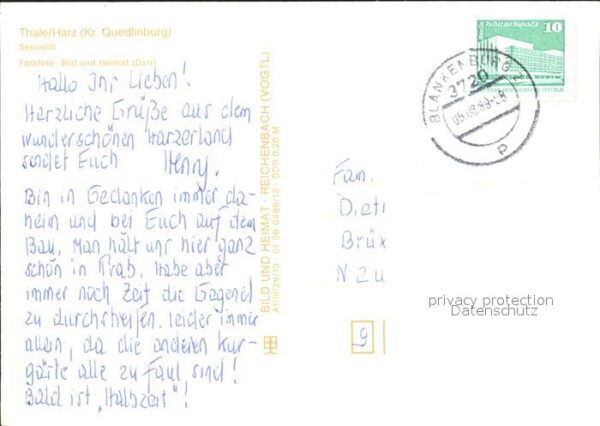 Thale/Harz (Kr. Quedlinburg)
Sessellift
Farbfoto: Bild und Heimat (Darr)
Hallo Ihr Lieben!
Herzliche Grüße aus dem
wunderschönen Harzerland
sendet Euch Henry.
Bin in Gedanken immer da-
heim und bei Euch auf dem
Bau. Man hält unr hier ganz
schön in Trab. Habe aber
immer noch Zeit die Gegend
zu durchstreifen. Leider immer
allein, da die anderen Kur-
gäste alle zu faul sind!
Bald ist „Halbzeit"!
BILD UND HEIMAT · REICHENBACH (VOGTL)
A1/III/26/13 · 01 08 0489/13 · DDR 0,20 M
10
BLANKENBURG
3720
Fam.
Diet
Brüx
N 2 u
9
privacy protection
Datenschutz